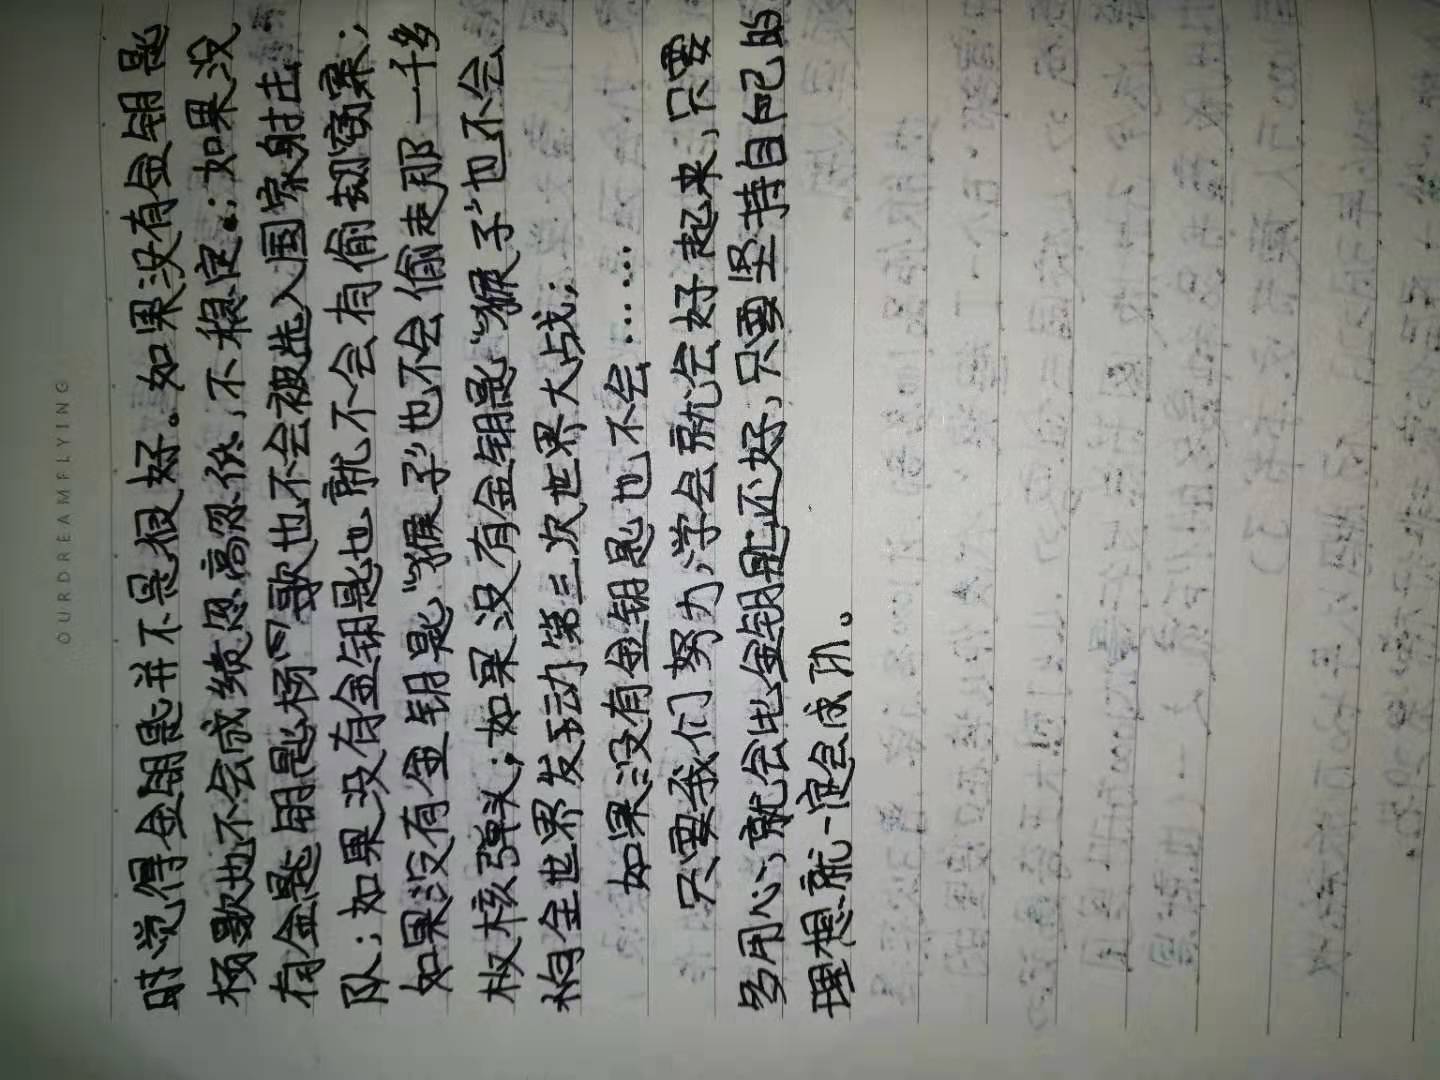 OURDREAMFLYING
时觉得金钥匙并不是很好。如果没有金钥匙
杨歌也不会成绩忽高忽低,不稳定。;如果没
有金匙钥匙杨歌也不会被选入国家射击
队;如果没有金钥匙也就不会有偷劫窃案;
如果没有金钥匙"猴子"也不会偷走那一千多
枚核弹头;如果没有金钥匙"猴子"也不会
向全世界发动第三次世界大战;
如果没有金钥匙也不会……
只要我们努力,学会就会好起来,只要
多用心,就会比金钥匙还好,只要坚持自己的
理想就一定会成功。